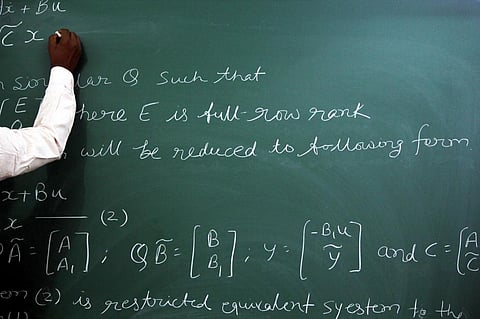 ẋ + Bu
C̃ x
singular Q such that
E where E is full-row rank
will be reduced to following form
x + Bu
x (2)
Ã = [A A₁] ; QB̃ = [B B₁] ; y = [-B₁u ỹ] and C = [A C̃
(2) is restricted equivalent syestem to the